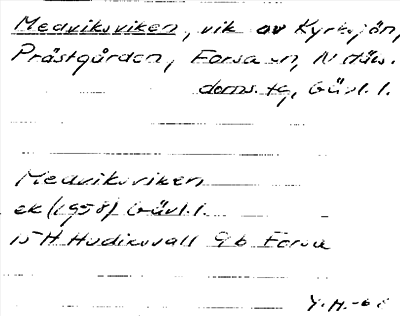 Medviksviken, vik av Kyrksjön,
Prästgården, Forsa sn, N Häls.
doms. tg, Gävl. l.
Medviksviken
ek (1958) Gävl. l.
15H Hudiksvall 9b Forsa
Y.H.-